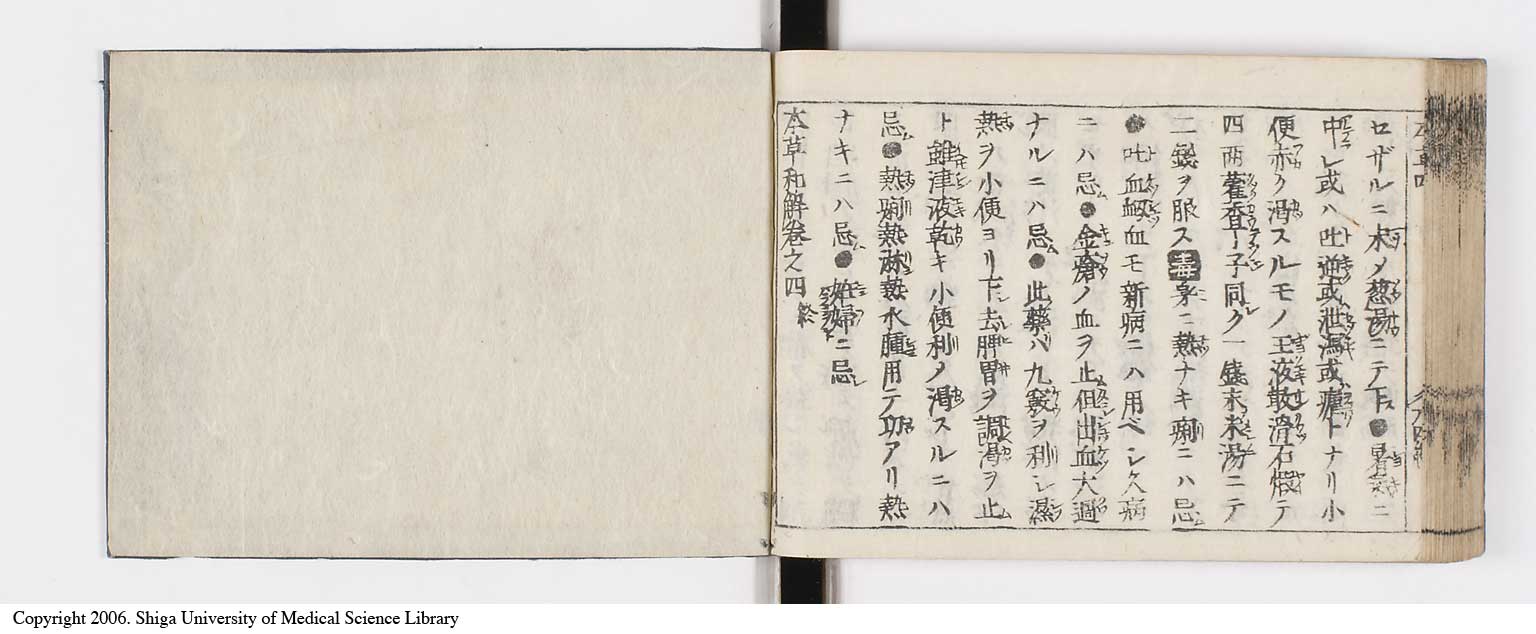 セザルニ木ノ葱湯ニテ下ス●暑氣ニ
中レ或ハ吐逆或泄瀉或瘧トナリ小
便赤ク渇スルモノ玉液散滑石煅テ
四両藿香丁子同ク一錢末米湯ニテ
二錢ヲ服ス毒身ニ熱ナキ痢ニハ忌
●吐血衂血モ新病ニハ用ベシ久病
ニハ忌●金瘡ノ血ヲ止但出血大過
ナルニハ忌●此藥ハ九竅ヲ利シ濕
熱ヲ小便ヨリ下シ去脾胃ヲ調渇ヲ止
ト雖津液乾キ小便利ノ渇スルニハ
忌●熱痢熱淋熱水腫用テ功アリ熱
ナキニハ忌●妊婦ニ忌
本草和解巻之四終
Copyright 2006. Shiga University of Medical Science Library